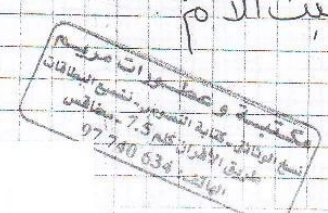 بيت الأم
مكتبة و عطورات مريم
نسخ الوثائق - كتابة النصوص - نسخ البطاقات
طريق الأفران كلم 7.5 - صفاقس
الهاتف : 97 740 634